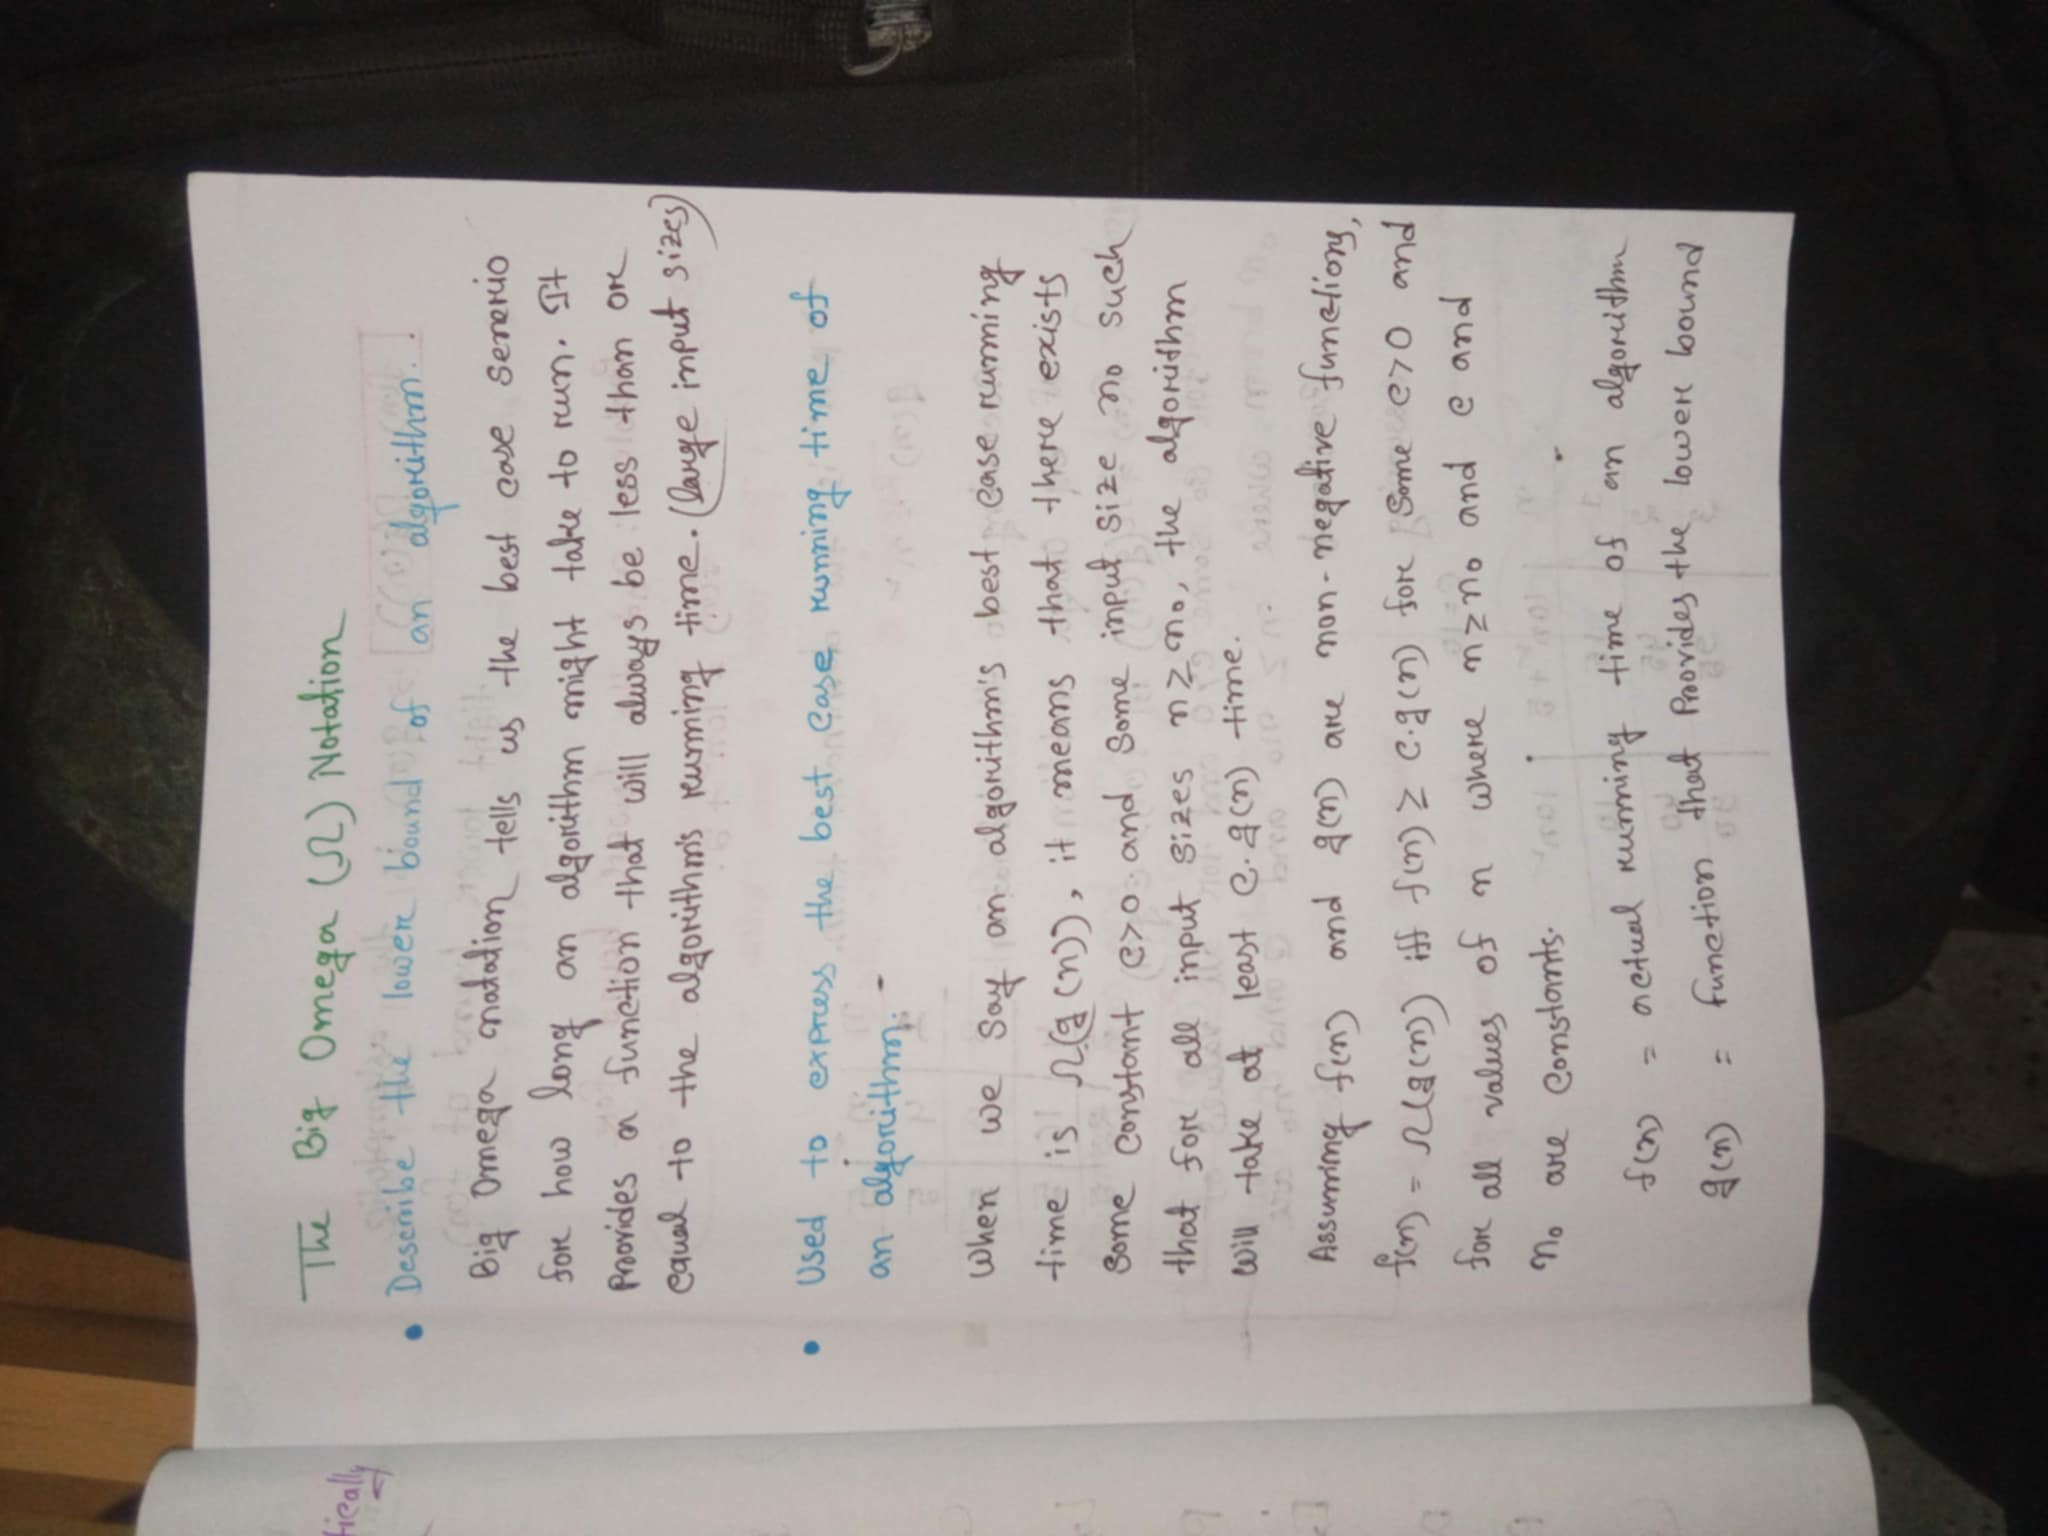 The Big Omega (Ω) Notation
• Describe the lower bound of an algorithm.
Big Omega notation tells us the best case senerio
for how long an algorithm might take to run. It
Provides a function that will always be less than or
equal to the algorithm's running time. (large input sizes)
• Used to express the best case running time of
an algorithm. -
When we say an algorithm's best case running
time is Ω(g(n)), it means that there exists
some constant c>0 and some input size n₀ such
that for all input sizes n≥n₀, the algorithm
will take at least c.g(n) time.
Assuming f(n) and g(n) are non-negative functions,
f(n) = Ω(g(n)) iff f(n) ≥ c.g(n) for some c>0 and
for all values of n where n≥n₀ and c and
n₀ are constants.
f(n) = actual running time of an algorithm
g(n) = function that Provides the lower bound